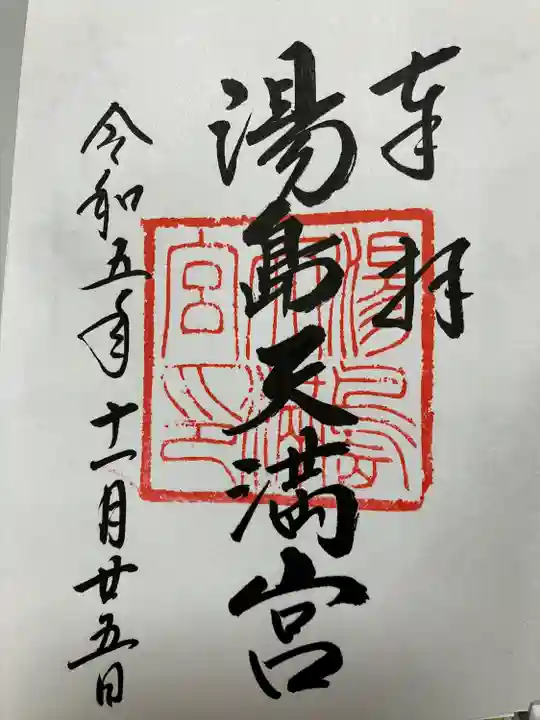 奉拝
湯島天満宮
湯島天満宮印
令和五年十一月廿五日